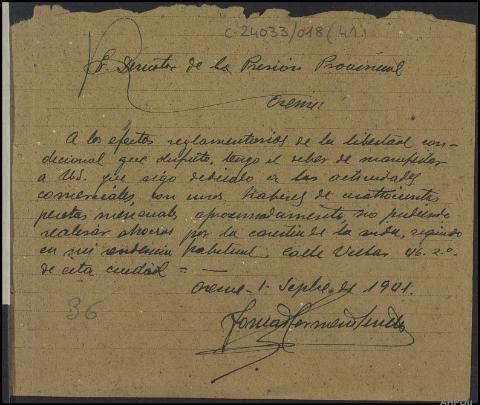 C-24033/018 (41)
Sr. Director de la Prisión Provincial
Orense
A los efectos reglamentarios de la libertad con-
dicional que disfruto, tengo el deber de manifestar
a Vd. que sigo dedicado a las actividades
comerciales, con unos haberes de cuatrocientas
pesetas mensuales, aproximadamente, no pudiendo
realizar ahorros por la carestía de la vida, siguiendo
en mi residencia habitual, Calle Villar 46. 2.º
de esta ciudad = —
Orense 1 Sepbre de 1941.
36